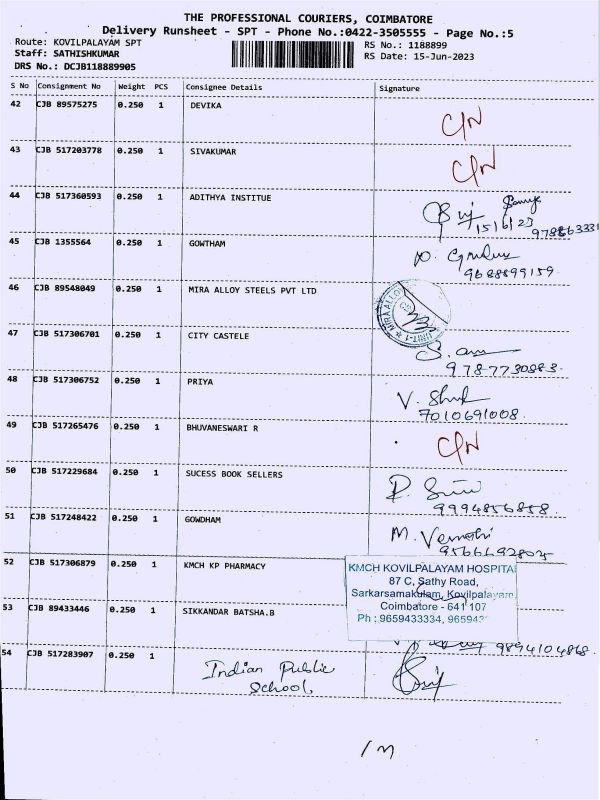 THE PROFESSIONAL COURIERS, COIMBATORE
Delivery Runsheet - SPT - Phone No.:0422-3505555 - Page No.:5
Route: KOVILPALAYAM SPT RS No.: 1188899
Staff: SATHISHKUMAR RS Date: 15-Jun-2023
DRS No.: DCJB118889905
S No Consignment No Weight PCS Consignee Details Signature
42 CJB 89575275 0.250 1 DEVIKA C/N
43 CJB 517203778 0.250 1 SIVAKUMAR C/N
44 CJB 517360593 0.250 1 ADITHYA INSTITUE
15/6/23
45 CJB 1355564 0.250 1 GOWTHAM
9688899159
46 CJB 89548049 0.250 1 MIRA ALLOY STEELS PVT LTD
MIRA ALLO UNIT-1
47 CJB 517306701 0.250 1 CITY CASTELE
9787730883
48 CJB 517306752 0.250 1 PRIYA
7010691008
49 CJB 517265476 0.250 1 BHUVANESWARI R C/N
50 CJB 517229684 0.250 1 SUCESS BOOK SELLERS
9994856858
51 CJB 517248422 0.250 1 GOWDHAM
52 CJB 517306879 0.250 1 KMCH KP PHARMACY
KMCH KOVILPALAYAM HOSPITA
87 C, Sathy Road,
Sarkarsamakulam, Kovilpalayam,
Coimbatore - 641 107
Ph : 9659433334, 965943
53 CJB 89433446 0.250 1 SIKKANDAR BATSHA.B
9894104868
54 CJB 517283907 0.250 1 Indian Public
School